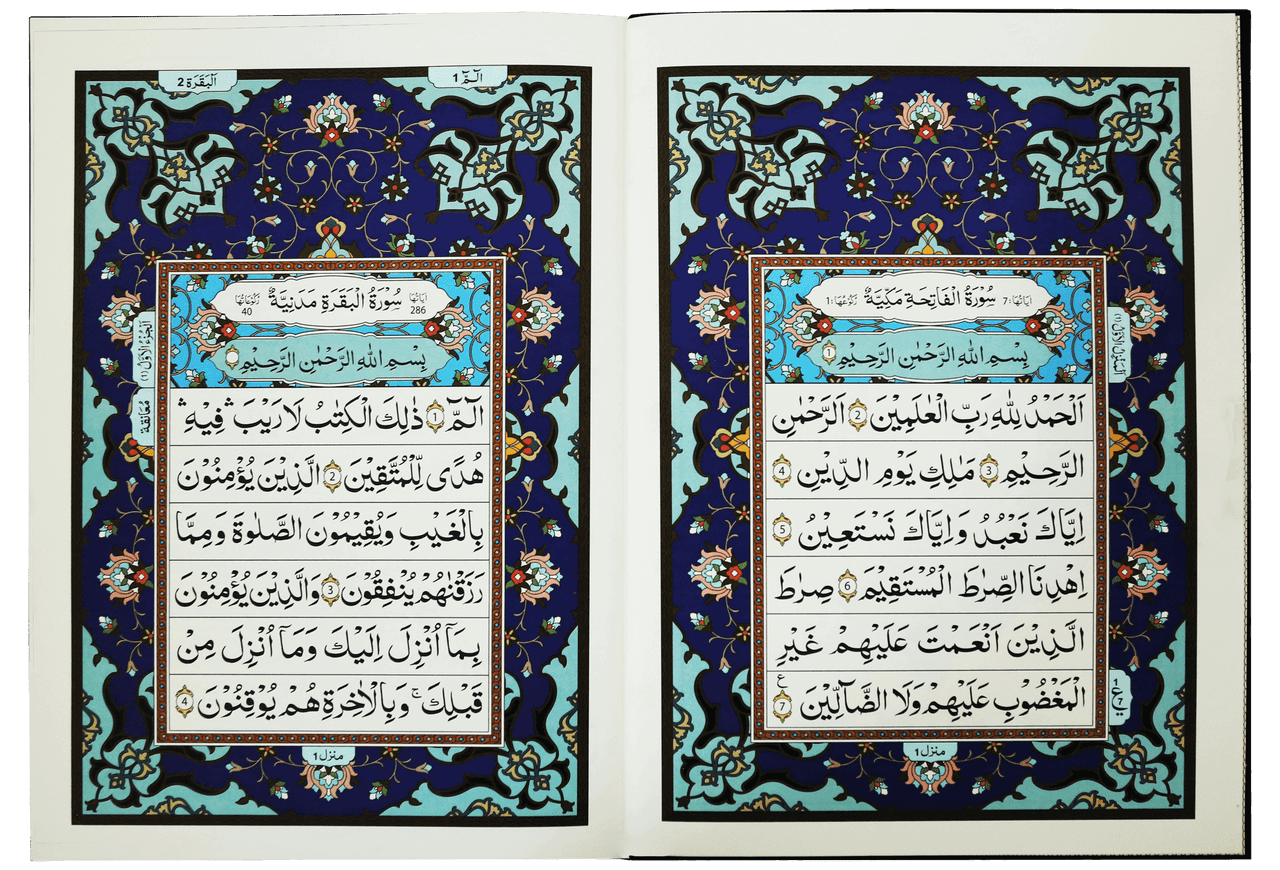 اٰيَاتُهَا : 7 سُوْرَةُ الْفَاتِحَةِ مَكِّيَّةٌ رُكُوْعُهَا : 1
بِسْمِ اللّٰهِ الرَّحْمٰنِ الرَّحِيْمِ 1
اَلْحَمْدُ لِلّٰهِ رَبِّ الْعٰلَمِيْنَ 2 اَلرَّحْمٰنِ
الرَّحِيْمِ 3 مٰلِكِ يَوْمِ الدِّيْنِ 4
اِيَّاكَ نَعْبُدُ وَاِيَّاكَ نَسْتَعِيْنُ 5
اِهْدِنَا الصِّرَاطَ الْمُسْتَقِيْمَ 6 صِرَاطَ
الَّذِيْنَ اَنْعَمْتَ عَلَيْهِمْ غَيْرِ
الْمَغْضُوْبِ عَلَيْهِمْ وَلَا الضَّآلِّيْنَ 7 ع
منزل 1
الٓمّٓ 1
اَلْبَقَرَة 2
اٰيَاتُهَا 286 سُوْرَةُ الْبَقَرَةِ مَدَنِيَّةٌ رُكُوْعَاتُهَا 40
بِسْمِ اللّٰهِ الرَّحْمٰنِ الرَّحِيْمِ
الٓمّٓ 1 ذٰلِكَ الْكِتٰبُ لَا رَيْبَ ۛ فِيْهِ ۛ
هُدًى لِّلْمُتَّقِيْنَ 2 الَّذِيْنَ يُؤْمِنُوْنَ
بِالْغَيْبِ وَيُقِيْمُوْنَ الصَّلٰوةَ وَمِمَّا
رَزَقْنٰهُمْ يُنْفِقُوْنَ 3 وَالَّذِيْنَ يُؤْمِنُوْنَ
بِمَآ اُنْزِلَ اِلَيْكَ وَمَآ اُنْزِلَ مِنْ
قَبْلِكَ ۚ وَبِالْاٰخِرَةِ هُمْ يُوْقِنُوْنَ 4
اَلْجُزْءُ الْاَوَّلُ (1)
مُعَانَقَة
منزل 1